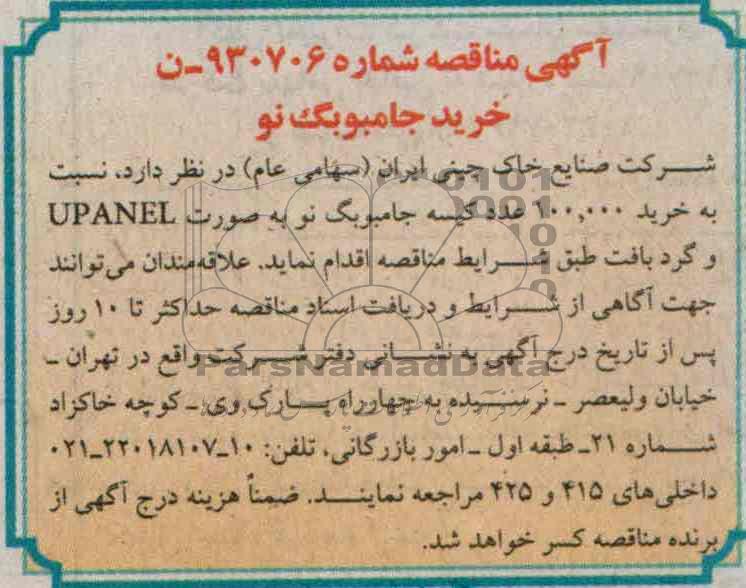 آگهی مناقصه شماره ۹۳۰۷۰۶-ن
خرید جامبوبگ نو
شرکت صنایع خاک چینی ایران (سهامی عام) در نظر دارد، نسبت
به خرید ۱۰۰,۰۰۰ عدد کیسه جامبوبگ نو به صورت UPANEL
و گرد بافت طبق شرایط مناقصه اقدام نماید. علاقه‌مندان می‌توانند
جهت آگاهی از شرایط و دریافت اسناد مناقصه حداکثر تا ۱۰ روز
پس از تاریخ درج آگهی به نشانی دفتر شرکت واقع در تهران -
خیابان ولیعصر - نرسیده به چهارراه پارک وی - کوچه خاکزاد
شماره ۲۱- طبقه اول - امور بازرگانی، تلفن: ۱۰-۲۲۰۱۸۱۰۷-۰۲۱
داخلی‌های ۴۱۵ و ۴۲۵ مراجعه نمایند. ضمناً هزینه درج آگهی از
برنده مناقصه کسر خواهد شد.
ParsNamadData